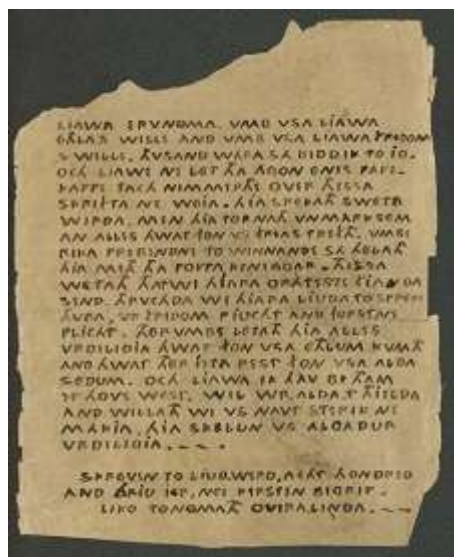 LIAWA ERVNOMA. VMB VSA LIAWA
EThLAS WILLE AND VMB VSA LIAWA FRIDOM
S WILLE. ThUSAND WARA SA BIDDIK TO IO.
OCh LIAWE NE LET ThA AGON ENIS PAPE-
KAPPE TACh NIMMERThE OVER ThISSA
SKRIFTA NE WEIA. HIA SPREKATh SWETA
WIRDA. MEN HIA TORNATh VNMARKSEM
AN ALLES HWAT FON VS FRYAS TREFTh. VMBE
RIKA PREBENDNE TO WINNANDE SA HELATh
HIA MITh ThA POPPA KENINGGAR. ThISSA
WETATh ThAT WI HIARA GRATESTE FIANDA
SEND. ThRVChDA WI HIARA LIUDA TO SPREKE
ThVRA, VR FRIDOM RIUChT AND FORSTNE
PLIChT. ThERVMBE LETATh HIA ALLES
VRDILIGIA HWAT FON VSA EThLUM KUMTh
AND HWAT ThER IETA REST FON VSA ALDA
SEDUM. OCh LIAWA IK HAV BI ThAM
ET HOVE WEST. WIL WR.ALDA.T ThIELDA
AND WILLATh WI VS NAVT STERIK NE
MAKIA, HIA SKELLUN VS ALGADUR
VRDILIGIA.
SKREVEN TO LIUDWERD, AChT HONDRED
AND ThRIU IER, NEI KERSTEN BIGRIP.
LIKO TONOMATh OVIRA LINDA.